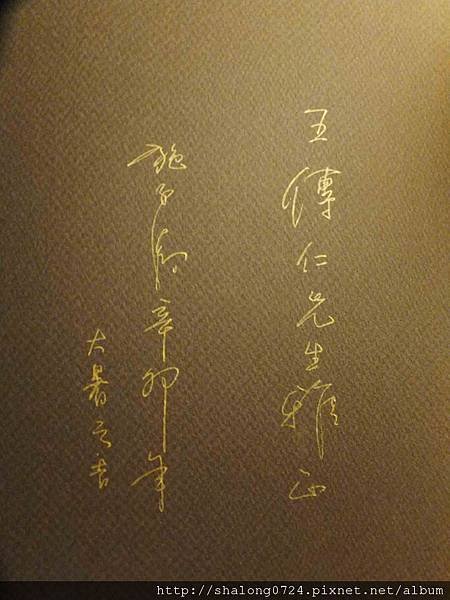 王傳仁先生雅正
施子清辛卯年
大暑之吉
http://shalong0724.pixnet.net/album